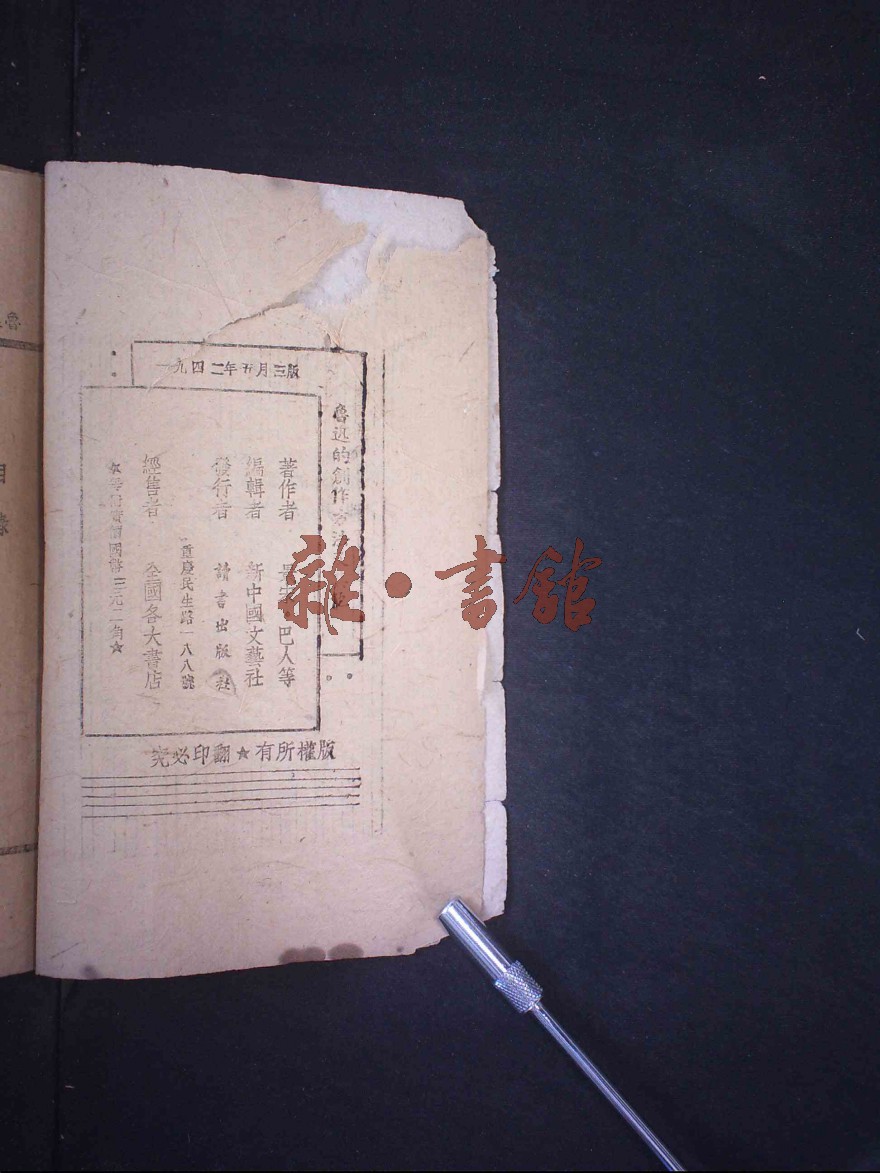 一九四二年五月三版
魯迅的創作方法
著作者 景宋 巴人等
編輯者 新中國文藝社
發行者 讀書出版社
重慶民生路一八八號
經售者 全國各大書店
本書實價國幣三元二角★
版權所有★翻印必究
雜·書館
魯
目